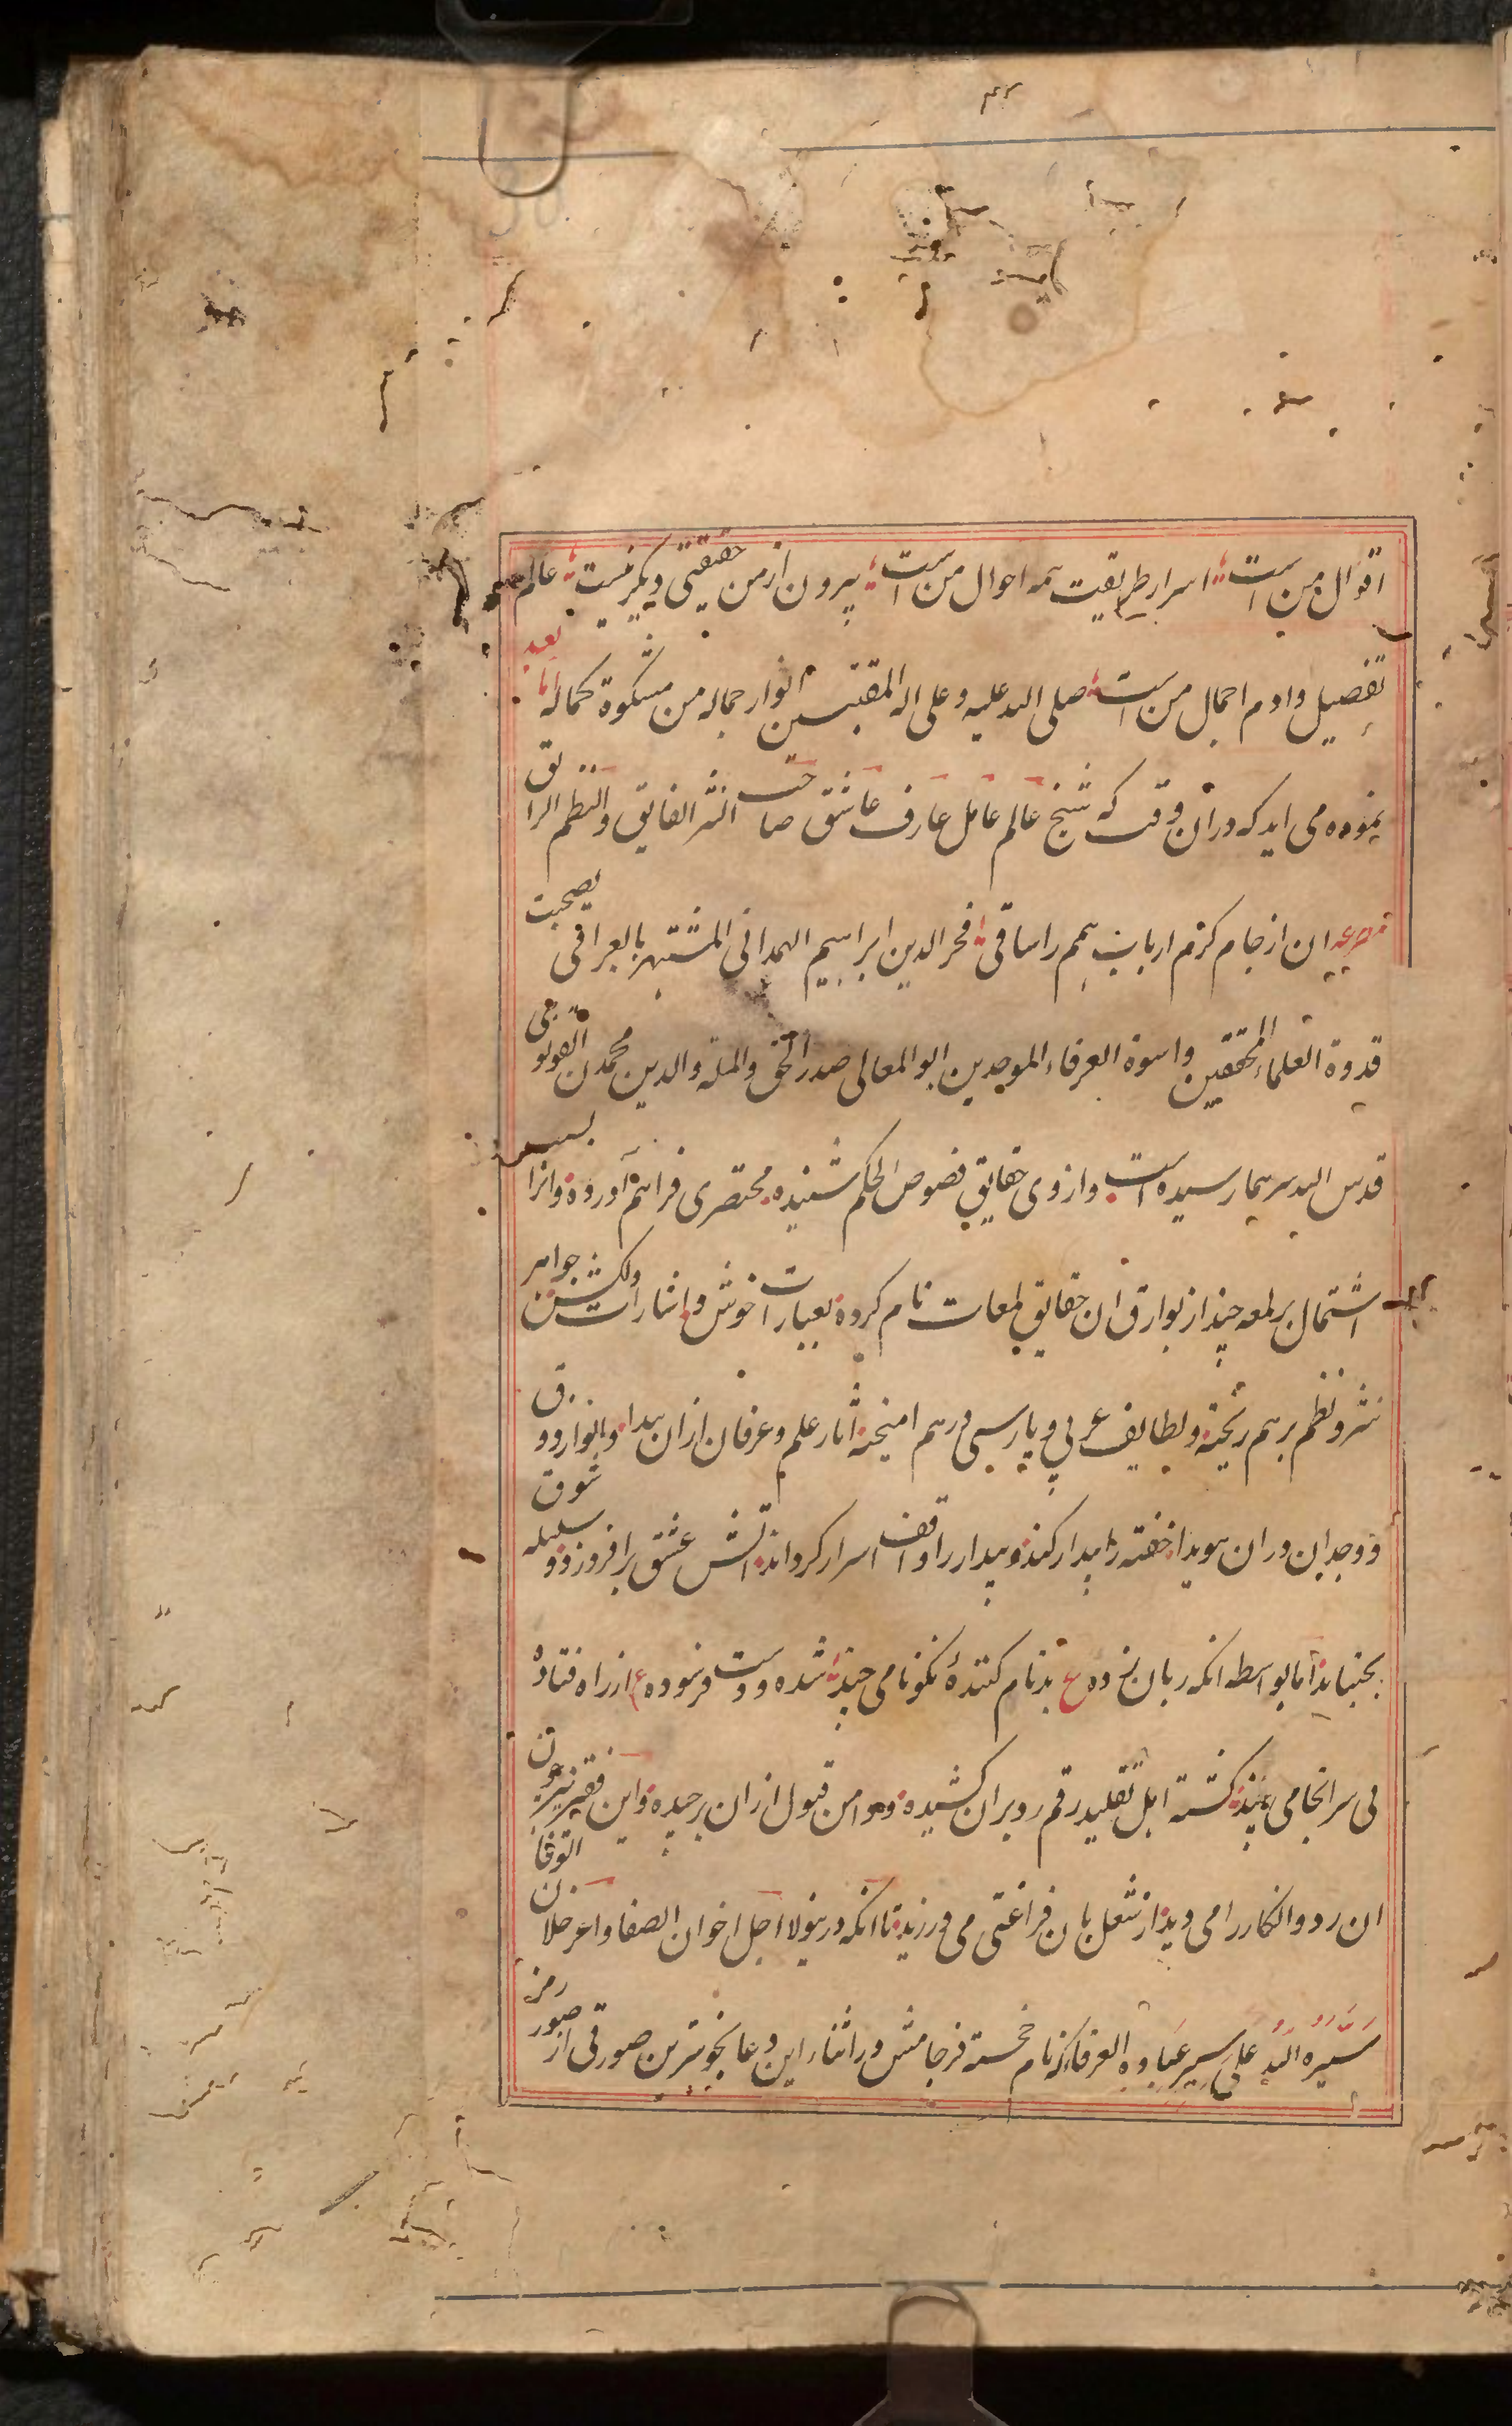 ۴۳
اقوال من است اسرار طریقت همه احوال من است بیرون از من حقیقتی دیگر نیست عالم همه
تفصیل و ادم اجمال من است صلی الله علیه و علی اله المقتبسین انوار جماله من مشکوة کماله اما بعد
نموده می اید که در آن وقت که شیخ عالم عامل عارف عاشق صاحب النثر الفایق و النظم الرایق
مصرعه ان از جام کرم ارباب همم را ساقی فخر الدین ابراهیم الهمدانی المشتهر بالعراقی بصحبت
قدوة العلماء المحققین و اسوة العرفاء الموحدین ابو المعالی صدر الحق و المله و الدین محمد ن القونوی
قدس الله سرهما رسیده است و از وی حقایق فصوص الحکم شنیده مختصری فراهم آورده و انرا بسبب
اشتمال بر لمعه چند از بوارق ان حقایق لمعات نام کرده بعبارات خوش و اشارات دلکش جواهر
نثر و نظم بر هم ریخته و لطایف عربی و پارسی درهم امیخته اثار علم و عرفان از ان پیدا و انوار ذوق
و وجدان در ان هویدا خفته را بیدار کند و بیدار را واقف اسرار کرداند اتش عشق برافروزد و سلسله شوق
بجنباند اما بواسطه انکه زبان زده ع بدنام کنندهٔ نکونامی چند شده و دست فرسوده ع از راه فتادهٔ
بی سرانجامی چند کشته اهل تقلید رقم رد بر ان کشیده و دامن قبول از ان برچیده و این فقیر نیز چون
ان رد و انکار را می دید از شغل بان فراغتی می ورزید تا انکه در ینولا اجل اخوان الصفا و اعز خلان الوفا
سیره الله علی سیر عباده العرفاء که نام خجسته فرجامش در اثناء این دعا بخوبترین صورتی از صور رمز